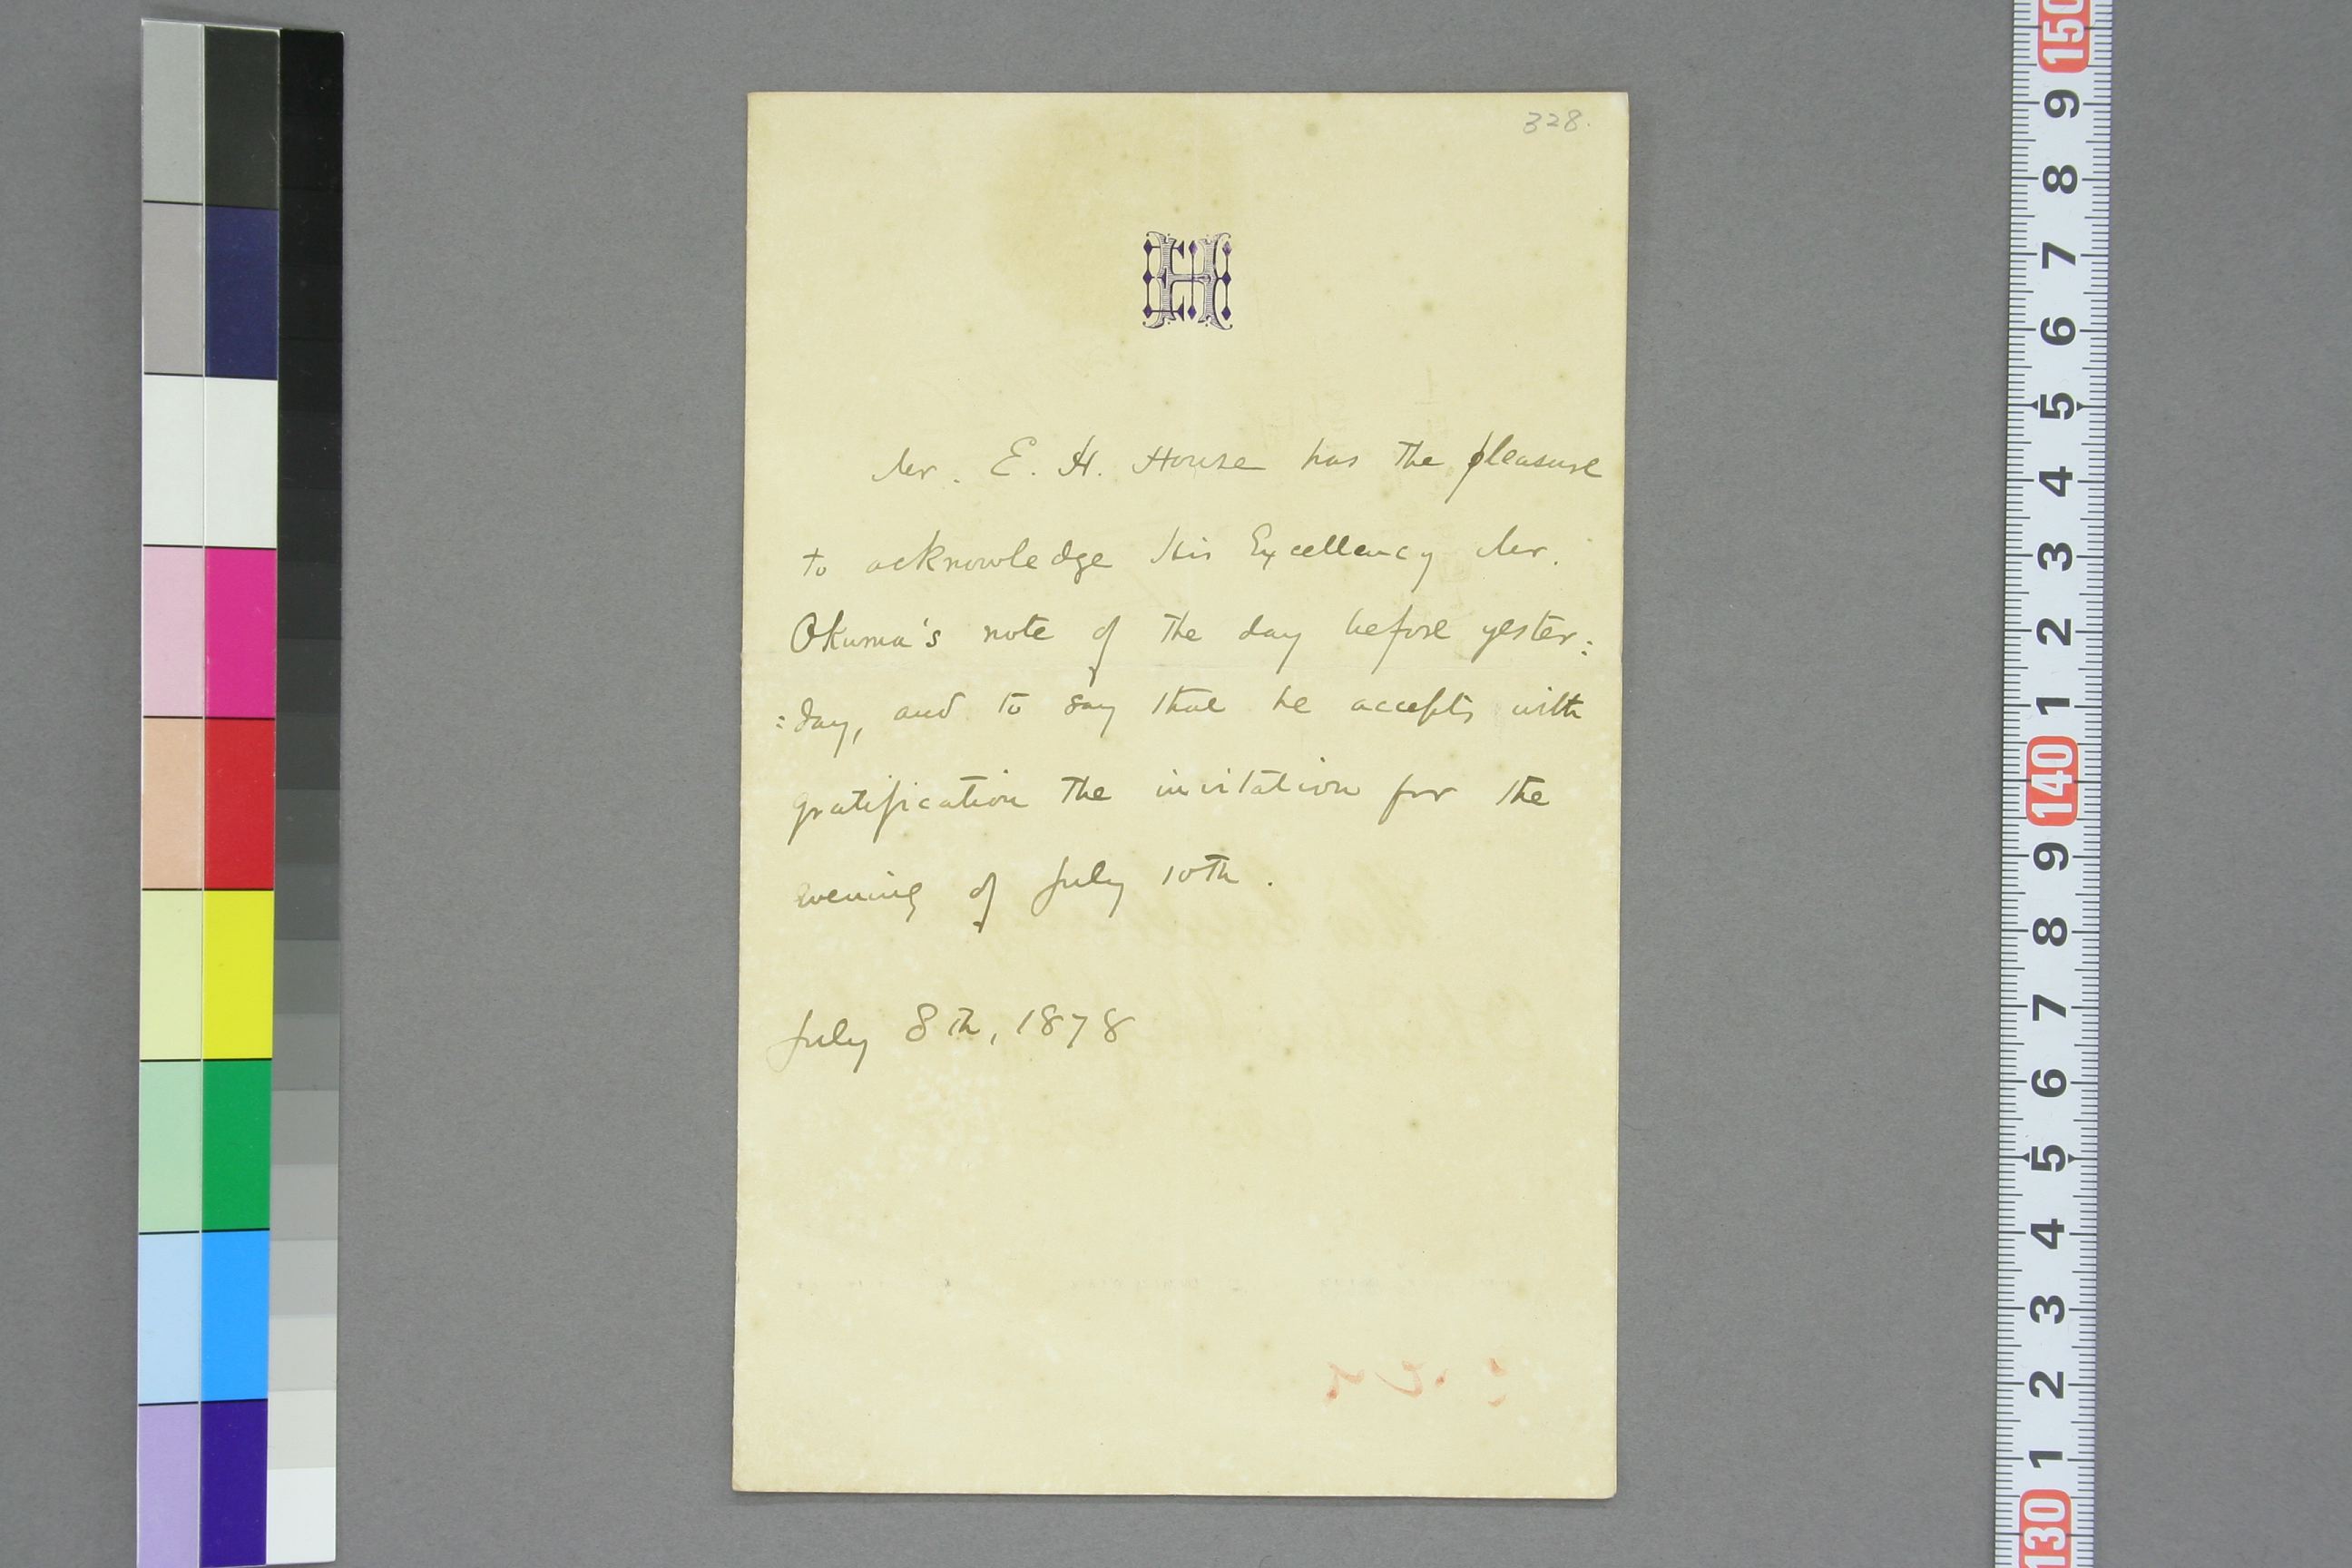 328.
EHH
Mr. E. H. House has the pleasure
to acknowledge His Excellency Mr.
Okuma's note of the day before yester:
:day, and to say that he accepts with
gratification the invitation for the
evening of July 10th.
July 8th, 1878
150
9
8
7
6
5
4
3
2
1
140
9
8
7
6
5
4
3
2
1
130